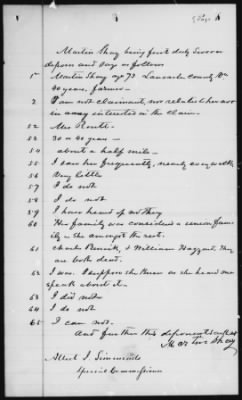 Martin Shay being first duly sworn
deposes and says as follows
1 Martin Shay age 73 Lancaster County Pa
40 years, farmer—
2 I am not claimant, nor related, nor am
in any way interested in the claim.
52 Mrs
53 30 or 40 years—
54 about a half mile—
55 I saw her frequently, nearly every week
56 Very little
57 I do not
58 I do not
59 I have heard of no they
60 Her family was considered a union family
in the amongst the rest.
61 Charles & William Haggard. They
are both dead.
62 I was. I suppose she knew as she heard me
speak about it—
63 I did not—
64 I do not
65 I can not.
And further this deponent saith not
Martin Shay
Albert J. Simmonds
Special Commissioner